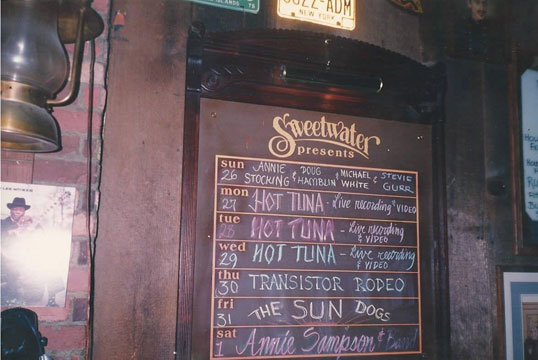 NEW YORK
Sweetwater
presents
sun 26 ANNIE STOCKING & DOUG HAMBLIN & MICHAEL WHITE & STEVIE GURR
mon 27 HOT TUNA - Live recording & VIDEO
tue 28 HOT TUNA - Live recording & VIDEO
wed 29 HOT TUNA - Live recording & VIDEO
thu 30 TRANSISTOR RODEO
fri 31 THE SUN DOGS
sat 1 Annie Sampson & Band